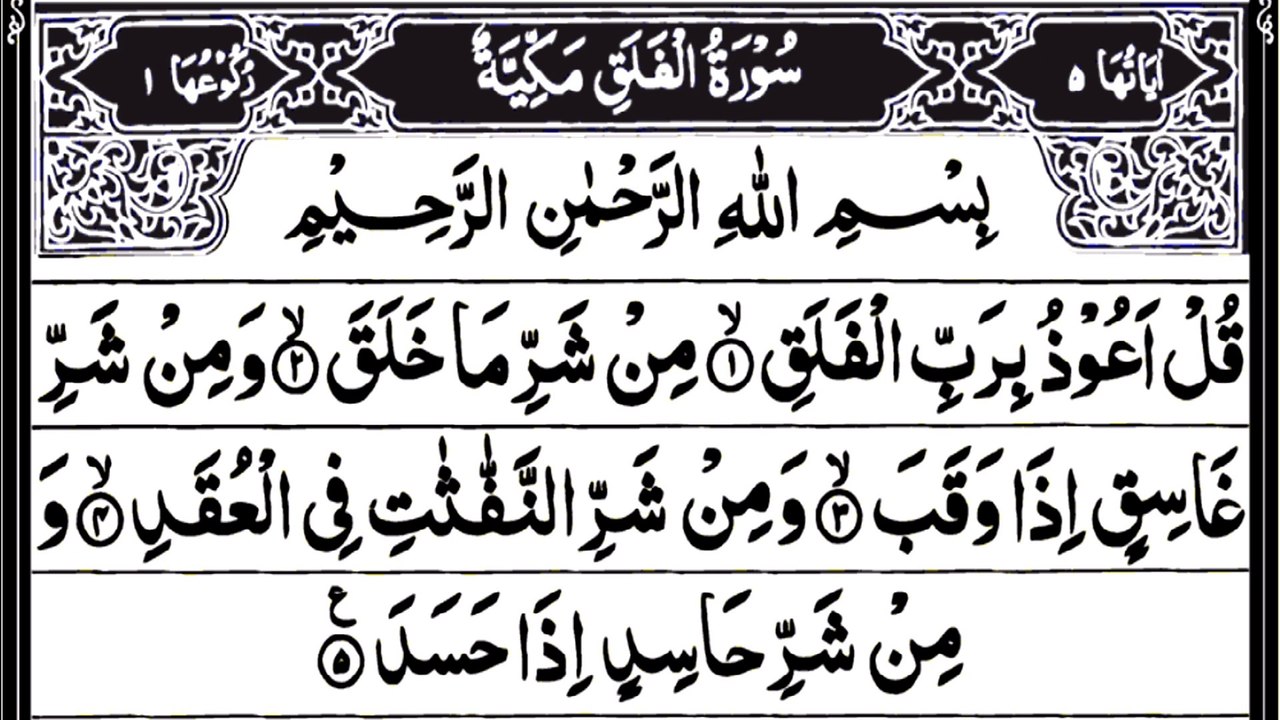 اٰیَاتُهَا ۵ سُوْرَةُ الْفَلَقِ مَكِّيَّةٌ رُكُوْعُهَا ۱
بِسْمِ اللّٰهِ الرَّحْمٰنِ الرَّحِيْمِ
قُلْ اَعُوْذُ بِرَبِّ الْفَلَقِ ۙ﴿۱﴾ مِنْ شَرِّ مَا خَلَقَ ۙ﴿۲﴾ وَ مِنْ شَرِّ
غَاسِقٍ اِذَا وَقَبَ ۙ﴿۳﴾ وَ مِنْ شَرِّ النَّفّٰثٰتِ فِی الْعُقَدِ ۙ﴿۴﴾ وَ
مِنْ شَرِّ حَاسِدٍ اِذَا حَسَدَ ﴿۵﴾ ع